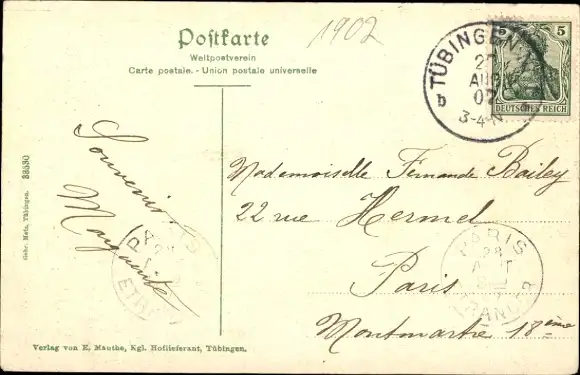 1902
Postkarte
Weltpostverein
Carte postale. - Union postale universelle
5 5
DEUTSCHES REICH
TÜBINGEN
27
AUG
07
3-4 N
b
Souvenir.
Marguerite
Mademoiselle Fernande Bailey
22 rue Hermel
Paris
Montmartre 18ème
PARIS
28
ETRANGER
P
ETR
33530
Gebr. Metz, Tübingen.
Verlag von E. Mauthe, Kgl. Hoflieferant, Tübingen.